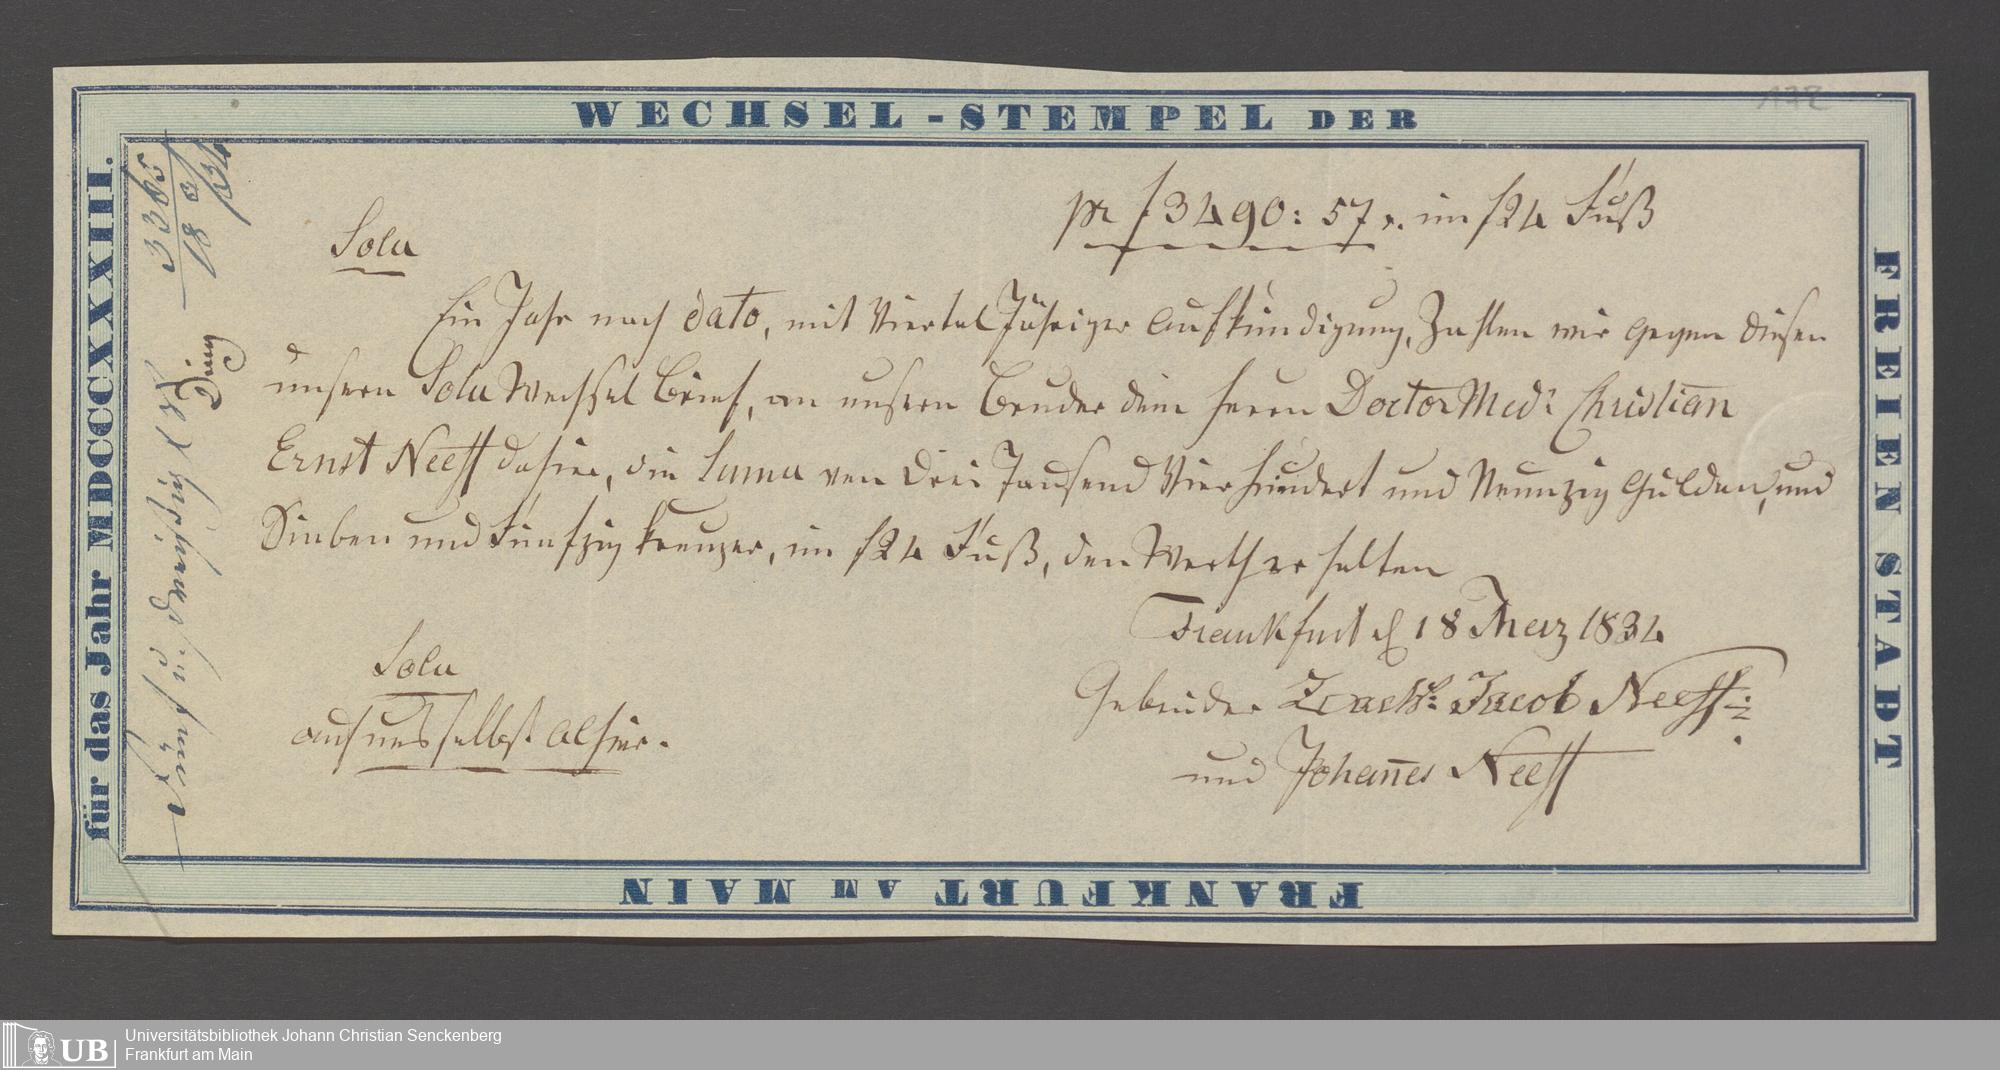 WECHSEL-STEMPEL DER
FREIEN STADT
FRANKFURT AM MAIN
für das Jahr MDCCCXXXIII.
172
3365
18 3/34
Fünf u. dreißig
Sola
pr f 3490: 57 x. im f 24 Fuß
Ein Jahr nach dato, mit Viertel Jähriger Aufkündigung, Zahlen wir gegen diesen
unsern Sola Wechsel Brief, an unsern Bruder dem Herrn Doctor Med: Christian
Ernst Neeff dahier, die Suma von Drei Tausend Vierhundert und Neunzig Gulden, und
Sieben und Fünfzig Kreuzer, im f 24 Fuß, den Werth erhalten
Frankfurt d 18 Merz 1834
Sola
auf uns selbst alhier.
Gebrüder Jacob Neeff
und Johañes Neeff
UB
Universitätsbibliothek Johann Christian Senckenberg
Frankfurt am Main